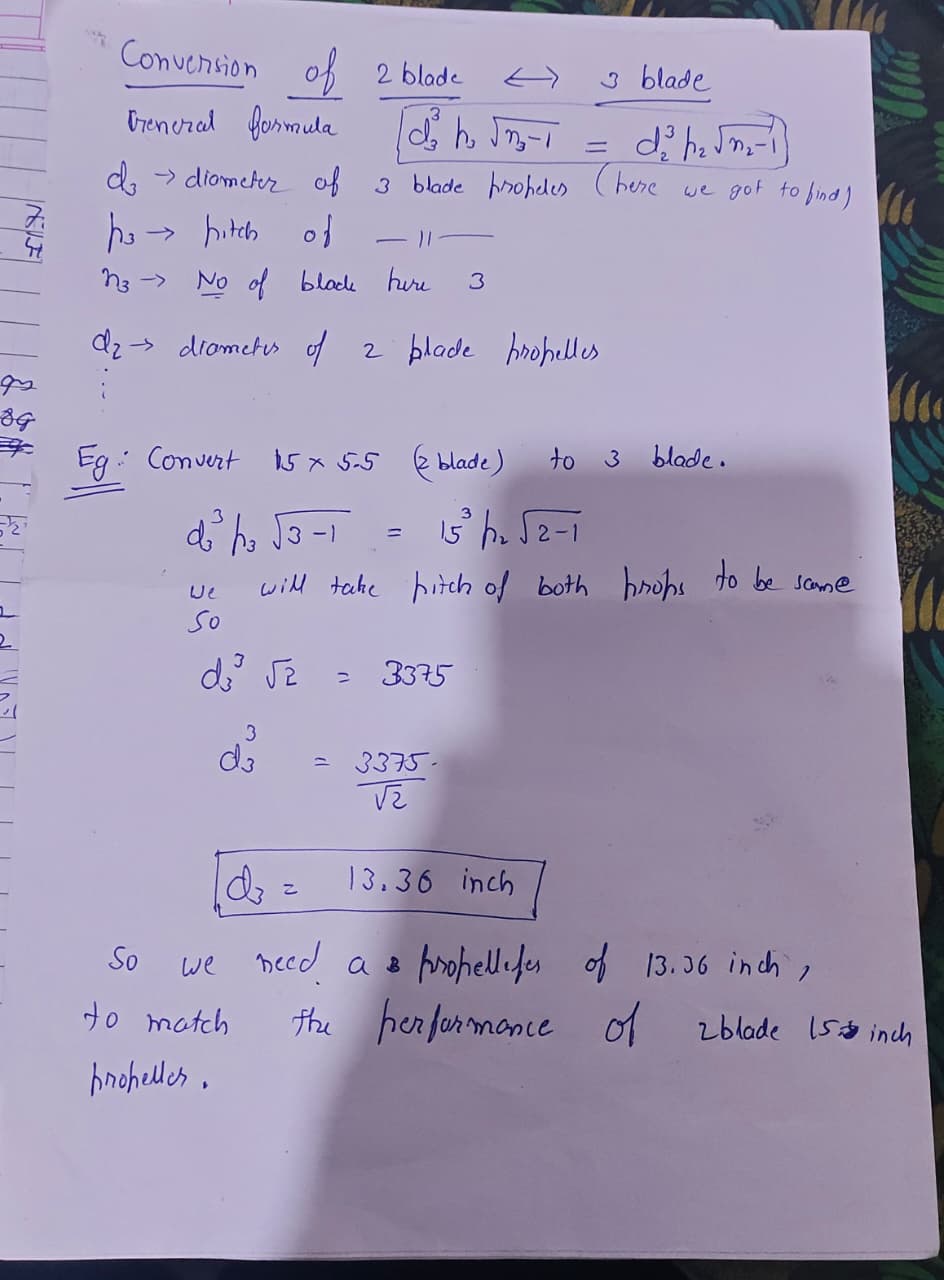 Conversion of 2 blade ↔ 3 blade
General formula d₃³ p₃ √n₃-1 = d₂³ p₂ √n₂-1
d₃ → diameter of 3 blade propeller (here we got to find)
p₃ → pitch of —11—
n₃ → No of blade here 3
d₂ → diameter of 2 blade propeller
⋮
Eg: Convert 15 x 5.5 (2 blade) to 3 blade.
d₃³ p₃ √3-1 = 15³ p₂ √2-1
we will take pitch of both props to be same
so
d₃³ √2 = 3375
d₃³ = 3375
√2
d₃ = 13.36 inch
So we need a propeller of 13.36 inch,
to match the performance of 2blade 15 inch
propeller.